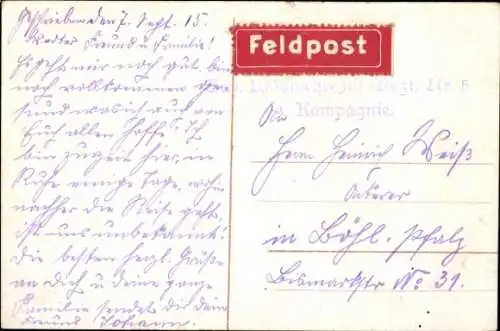 Geschrieben den 7. Sept. 15.
Werter Freund u. Familie!
Es geht mir noch gut, bin
noch vollkommen
gesund was ich auch von
Euch allen hoffe. Ich
bin zurzeit hier, in
Ruhe einige Tage, wohin
nachher die Reise geht,
ist uns unbekannt!
Die besten herzl. Grüße
an Dich u. deine ganze
Familie sendet dir dein
Freund Johann.
Feldpost
Kompagnie.
An
Herrn Heinrich Weiß
in Böhl. Pfalz
Bismarkstr No 31.